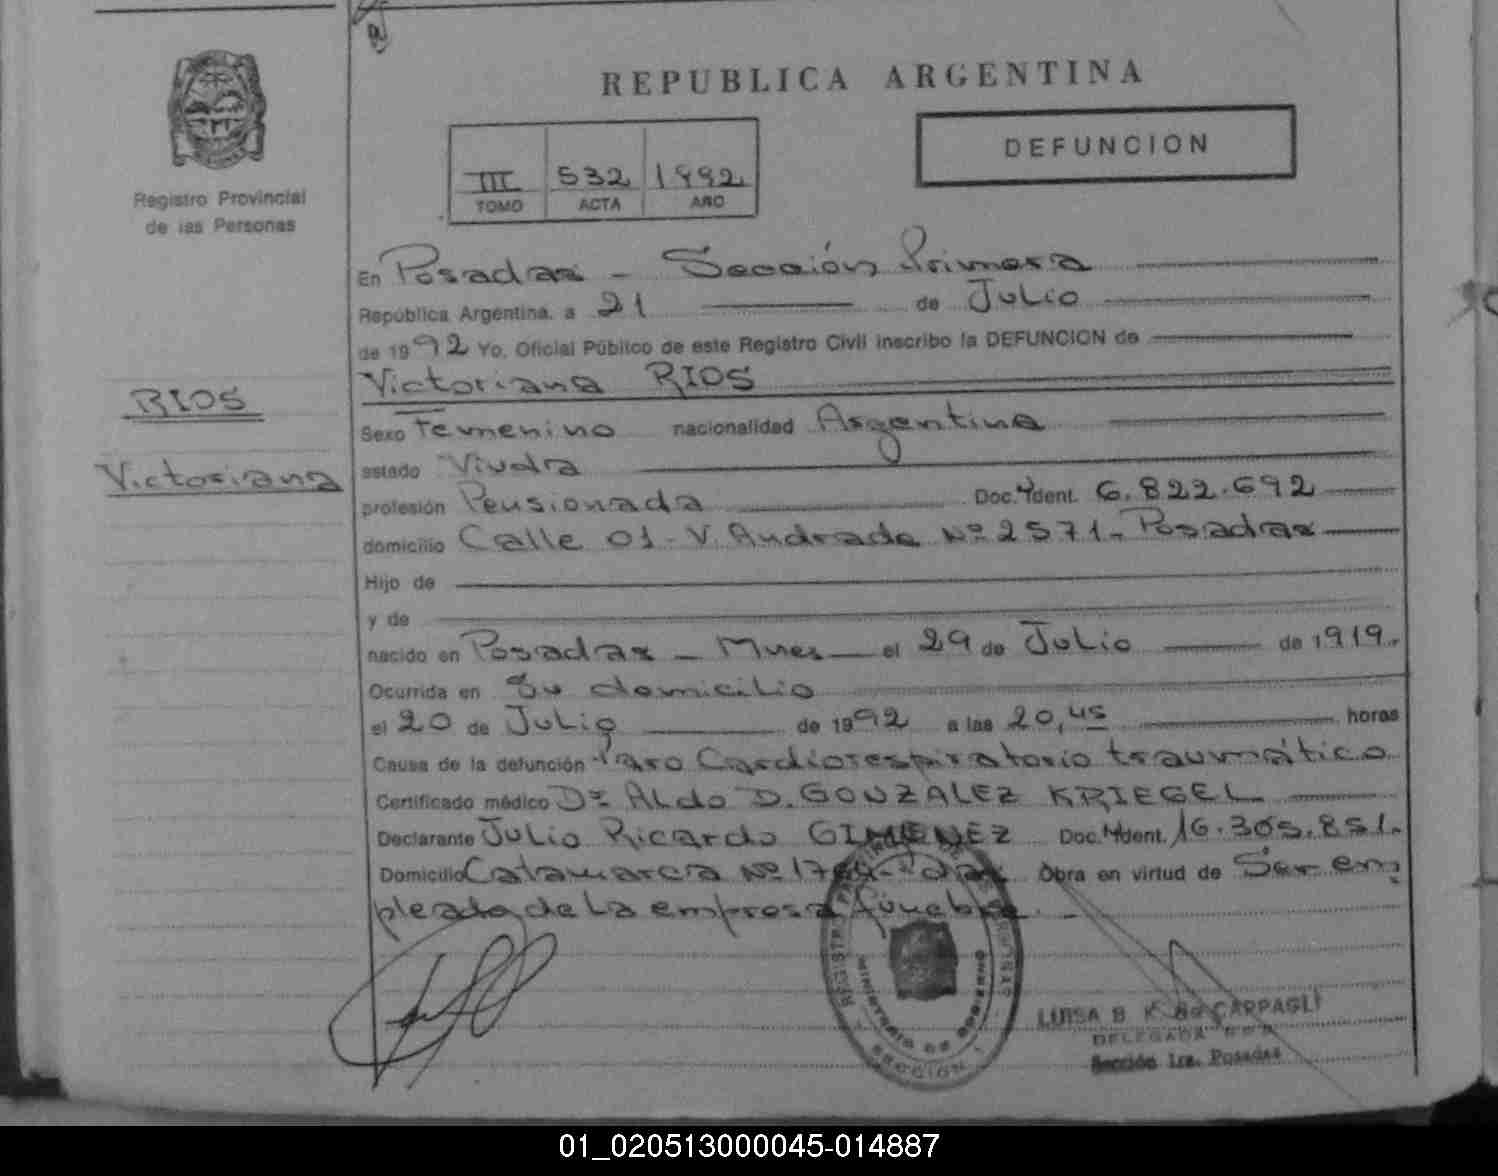 REPUBLICA ARGENTINA
DEFUNCION
III 532 1992
TOMO ACTA AÑO
Registro Provincial
de las Personas
En Posadas - Sección Primera
República Argentina, a 21 de Julio
de 1992 Yo, Oficial Público de este Registro Civil inscribo la DEFUNCION de
Victoriana RIOS
RIOS
Victoriana
Sexo Femenino nacionalidad Argentina
estado Viuda
profesión Pensionada Doc. Ident. 6.822.692
domicilio Calle 01 - V. Andrade Nº 2571 - Posadas
Hijo de
y de
nacido en Posadas - Mnes - el 29 de Julio de 1919.
Ocurrida en Su domicilio
el 20 de Julio de 1992 a las 20,45 horas
Causa de la defunción Paro Cardiorespiratorio traumático
Certificado médico Dr ALDO D. GONZALEZ KRIEGEL
Declarante Julio Ricardo GIMENEZ Doc. Ident. 16.305.851.
Domicilio Catamarca Nº Obra en virtud de Ser em
pleado de la empresa fúnebre. -
MINISTERIO DE GOBIERNO
SECCION 1
LUISA B. K. de CAPPAGLI
DELEGADA
Sección 1ra. Posadas
01_020513000045-014887